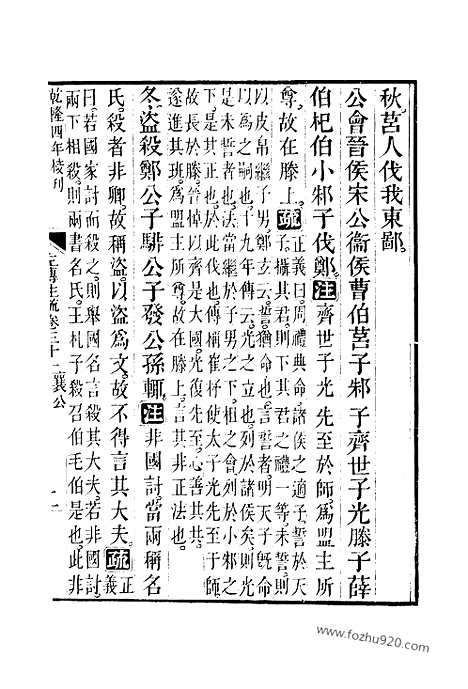 秋莒人伐我東鄙
公會晉侯宋公衞侯曹伯莒子邾子齊世子光滕子薛
伯杞伯小邾子伐鄭注齊世子光先至於師爲盟主所
尊故在滕上疏正義曰周禮典命諸侯之適子誓於天
子攝其君則下其君之禮一等未誓則
以皮帛繼子男鄭玄云誓猶命也言誓者明天子旣命
以爲之嗣也十九年傳云光之立也列於諸侯矣則光
是未誓者也法當繼於子男之下柤之會列於小邾之
下是其正也於此伐也傳稱崔杼使大子光先至于師
故長於滕晉悼以齊是大國光復先至心善其共
遂進其班爲盟主所尊故在滕上言其非正法也
冬盜殺鄭公子騑公子發公孫輒注非國討當兩稱名
氏殺者非卿故稱盜以盜爲文故不得言其大夫疏正
義
曰若國家討而殺之則舉國名言殺其大夫若非國討
兩下相殺則兩書名氏王札子殺召伯毛伯是也此非
乾隆四年校刊
左傳注疏卷三十一襄公
www.fozhu920.com